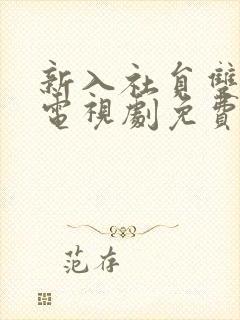 新入社員雙
電視劇免費
范存